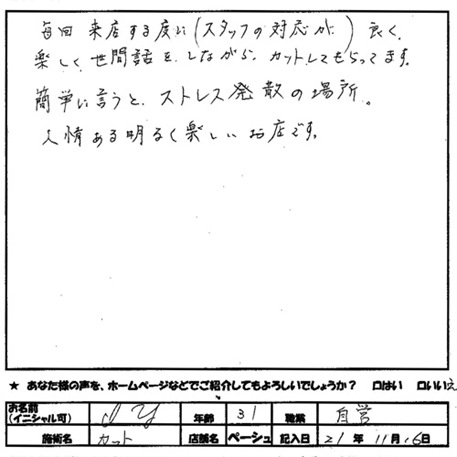 毎回 来店する度に(スタッフの対応が)良く、
楽しく世間話をしながら、カットしてもらってます。
簡単に言うと、ストレス発散の場所。
人情ある明るく楽しいお店です。
★ あなた様の声を、ホームページなどでご紹介してもよろしいでしょうか? 口はい 口いいえ
お名前(イニシャル可) I Y 年齢 31 職業 自営
施術名 カット 店舗名 ページュ 記入日 21年 11月 16日